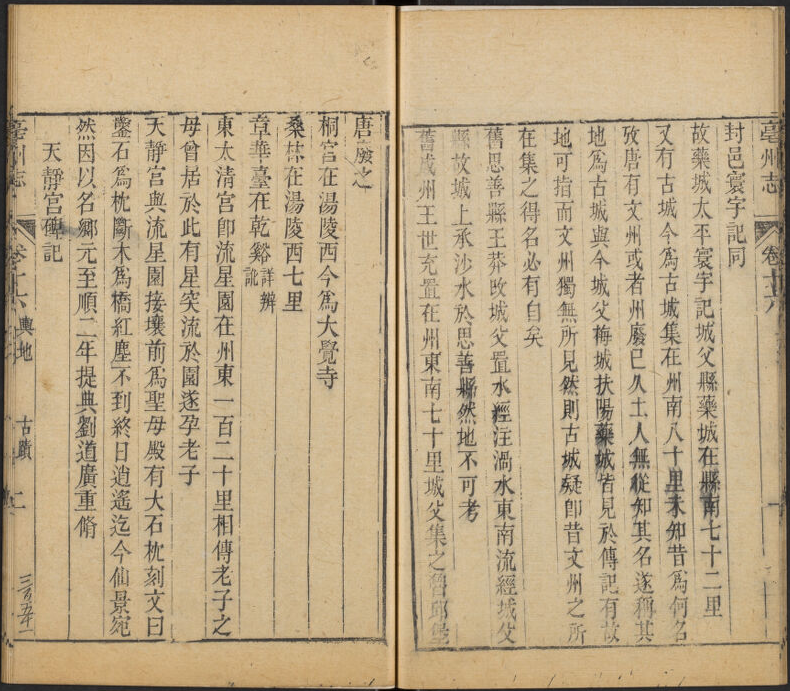 亳州志 卷十六 一
封邑寰宇記同
故藥城太平寰宇記城父縣藥城在縣南七十二里
又有古城今爲古城集在州南八十里未知昔爲何名
攷唐有文州或者州廢已久土人無從知其名遂稱其
地爲古城與今城父梅城扶陽藥城皆見於傳記有故
地可指而文州獨無所見然則古城疑卽昔文州之所
在集之得名必有自矣
舊思善縣王莽攺城父置水經注渦水東南流經城父
縣故城上承沙水於思善縣然地不可考
舊成州王世充置在州東南七十里城父集之魯邱堡
唐廢之
桐宮在湯陵西今爲大覺寺
桑林在湯陵西七里
章華臺在乾谿詳辨訛
東太清宮卽流星園在州東一百二十里相傳老子之
母曾居於此有星突流於園遂孕老子
天靜宮與流星園接壤前爲聖母殿有大石枕刻文曰
鑿石爲枕斷木爲橋紅塵不到終日逍遙迄今仙景宛
然因以名鄉元至順二年提典劉道廣重脩
天靜宮碑記
亳州志 卷十六 輿地 古蹟 二